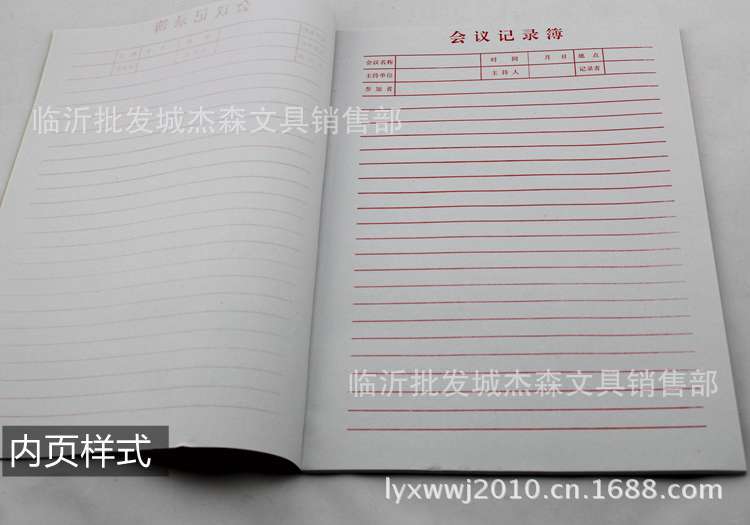 会议记录簿
会议名称 时 间 月 日 地 点
主持单位 主 持 人 记录者
参 加 者
临沂批发城杰森文具销售部
临沂批发城杰森文具销售部
内页样式
lyxwwj2010.cn.1688.com